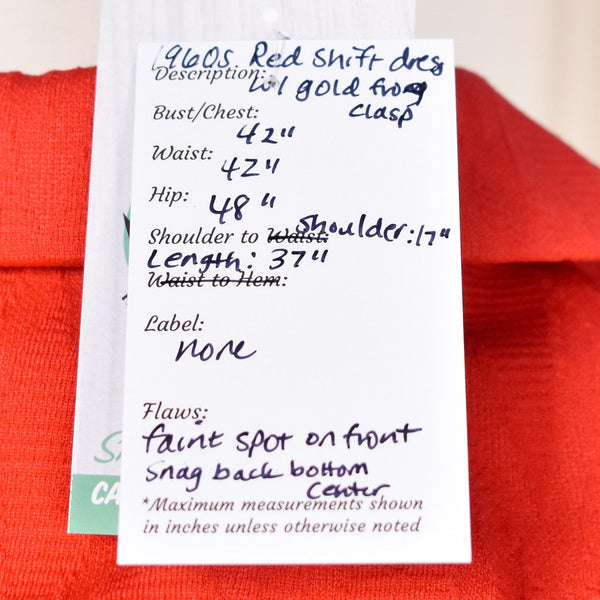 1960s Red shift dress
Description:
w/ gold frog
clasp
Bust/Chest:
42"
Waist:
42"
Hip:
48"
Shoulder to Waist: shoulder: 17"
Length: 37"
Waist to Hem:
Label:
none
Flaws:
faint spot on front
snag back bottom
center
*Maximum measurements shown
in inches unless otherwise noted